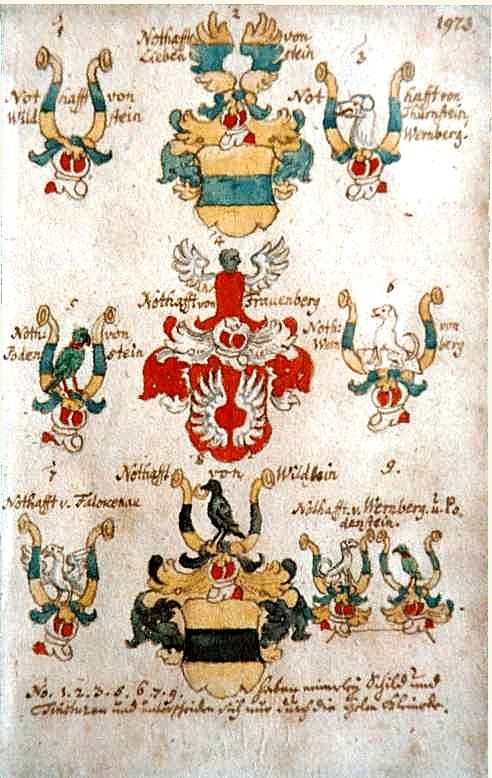 1973
1
Nothafft von
Wildstein
2
Nothafft von
Liebenstein
3
Nothafft von
Thurnstein
Wernberg.
4
Nothafft von Frauenberg
5
Noth: von
Bodenstein
6
Noth: von
Wernberg
7
Nothafft v.
8
Nothafft von
9.
Nothafft v. Wernberg. u. Bo
denstein.
No. 1. 2. 3. 5. 6. 7. 9. haben Schild und
Tincturen und unterscheiden sich nur durch die